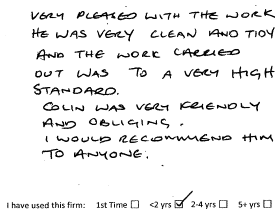 VERY PLEASED WITH THE WORK
HE WAS VERY CLEAN AND TIDY
AND THE WORK CARRIED
OUT WAS TO A VERY HIGH
STANDARD.
COLIN WAS VERY FRIENDLY
AND OBLIGING.
I WOULD RECOMMEND HIM
TO ANYONE.
I have used this firm: 1st Time ☐ <2 yrs ☑ 2-4 yrs ☐ 5+ yrs ☐